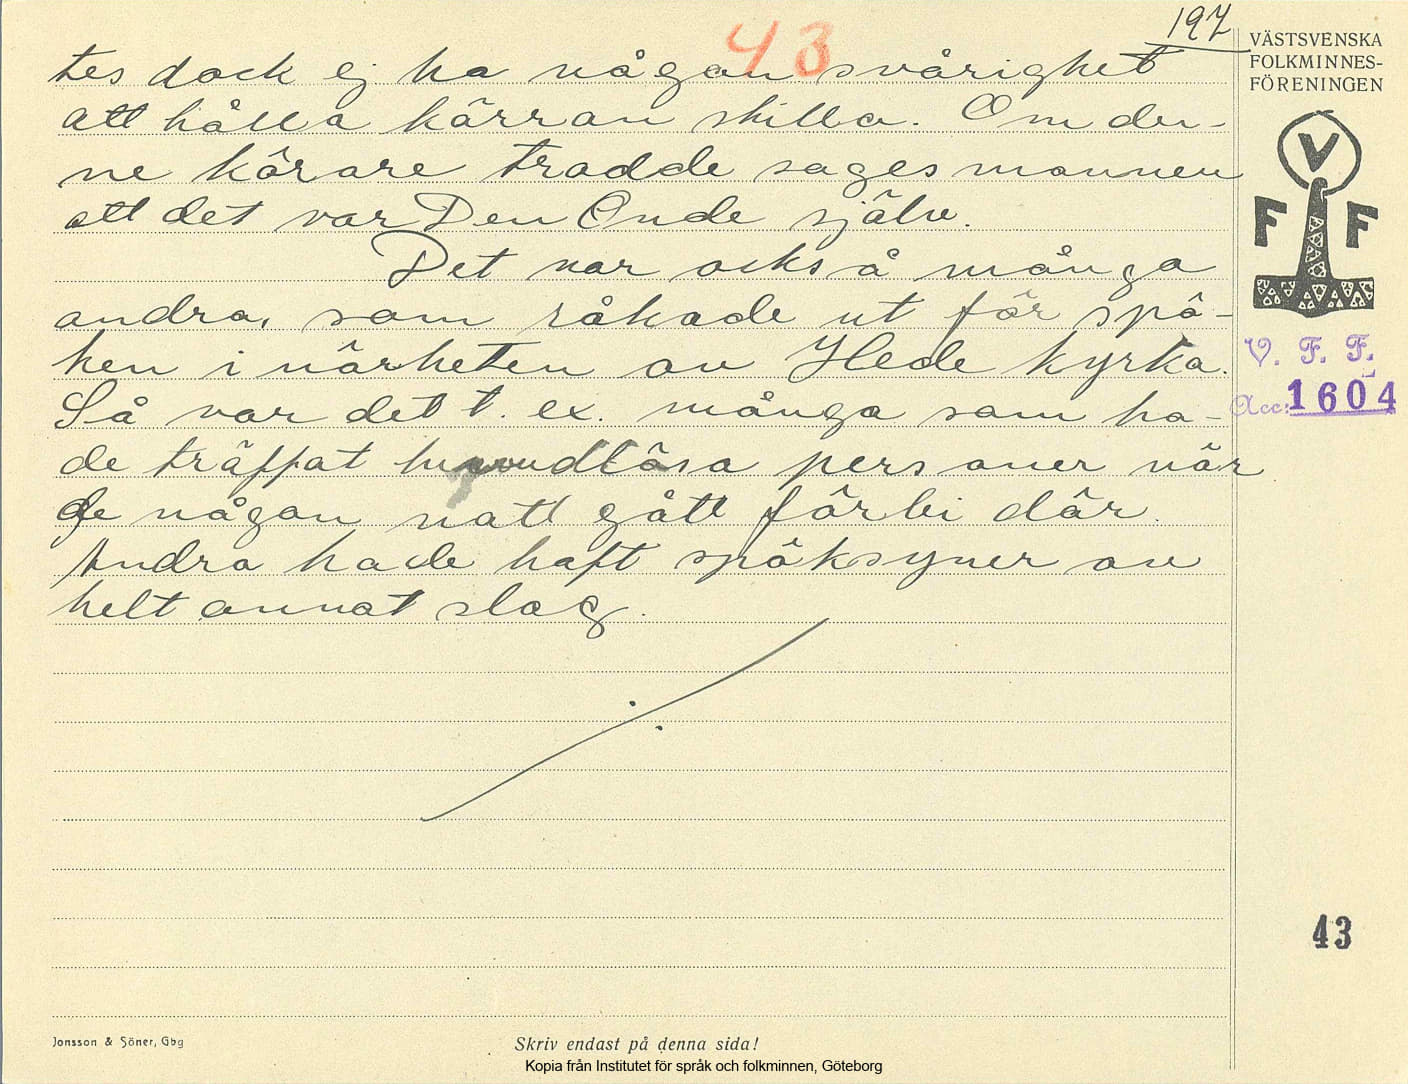 197
43
tes dock ej ha någon svårighet
att hålla kärran stilla. Om den-
ne körare trodde sagesmannen
att det var Den Onde själv.
Det var också många
andra, som råkade ut för spö-
ken i närheten av Hede kyrka.
Så var det t. ex. många som ha-
de träffat huvudlösa personer när
de någon natt gått förbi där.
Andra hade haft spöksyner av
helt annat slag.
VÄSTSVENSKA
FOLKMINNES-
FÖRENINGEN
V
F F
V. F. F.
Acc: 1604
43
Jonsson & Söner, Gbg
Skriv endast på denna sida!
Kopia från Institutet för språk och folkminnen, Göteborg